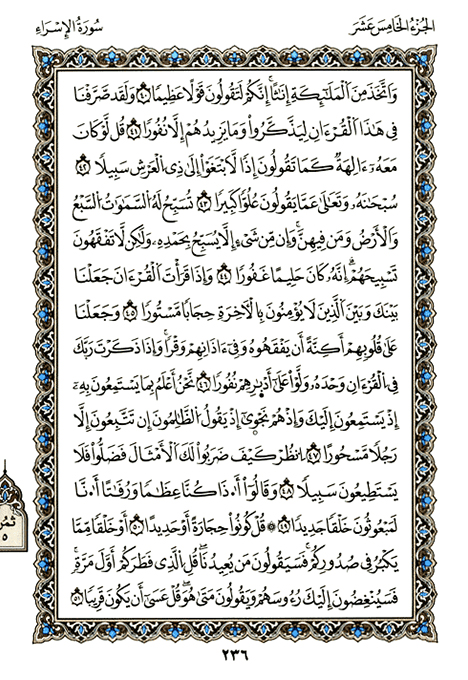 الجُزْءُ الخَامِسَ عَشَرَ
سُورَةُ الإِسْرَاءِ
وَاتَّخَذَ مِنَ الْمَلَٰٓئِكَةِ إِنَٰثًاۚ إِنَّكُمْ لَتَقُولُونَ قَوْلًا عَظِيمًا ٤٠ وَلَقَد صَّرَّفْنَا
فِى هَٰذَا الْقُرْءَانِ لِيَذَّكَّرُواْ وَمَا يَزِيدُهُمْ إِلَّا نُفُورًا ٤١ قُل لَّوْ كَانَ
مَعَهُۥٓ ءَالِهَةٌ كَمَا تَقُولُونَ إِذًا لَّابْتَغَوْاْ إِلَىٰ ذِى الْعَرْشِ سَبِيلًا ٤٢
سُبْحَٰنَهُۥ وَتَعَٰلَىٰ عَمَّا يَقُولُونَ عُلُوًّا كَبِيرًا ٤٣ تُسَبِّحُ لَهُ السَّمَٰوَٰتُ السَّبْعُ
وَالْأَرْضُ وَمَن فِيهِنَّۚ وَإِن مِّن شَىْءٍ إِلَّا يُسَبِّحُ بِحَمْدِهِۦ وَلَٰكِن لَّا تَفْقَهُونَ
تَسْبِيحَهُمْۚ إِنَّهُۥ كَانَ حَلِيمًا غَفُورًا ٤٤ وَإِذَا قَرَأْتَ الْقُرْءَانَ جَعَلْنَا
بَيْنَكَ وَبَيْنَ الَّذِينَ لَا يُؤْمِنُونَ بِالْأَخِرَةِ حِجَابًا مَّسْتُورًا ٤٥ وَجَعَلْنَا
عَلَىٰ قُلُوبِهِمْ أَكِنَّةً أَن يَفْقَهُوهُ وَفِىٓ ءَاذَانِهِمْ وَقْرًاۚ وَإِذَا ذَكَرْتَ رَبَّكَ
فِى الْقُرْءَانِ وَحْدَهُۥ وَلَّوْاْ عَلَىٰٓ أَدْبَٰرِهِمْ نُفُورًا ٤٦ نَّحْنُ أَعْلَمُ بِمَا يَسْتَمِعُونَ بِهِۦٓ
إِذْ يَسْتَمِعُونَ إِلَيْكَ وَإِذْ هُمْ نَجْوَىٰٓ إِذْ يَقُولُ الظَّٰلِمُونَ إِن تَتَّبِعُونَ إِلَّا
رَجُلًا مَّسْحُورًا ٤٧ انظُرْ كَيْفَ ضَرَبُواْ لَكَ الْأَمْثَالَ فَضَلُّواْ فَلَا
يَسْتَطِيعُونَ سَبِيلًا ٤٨ وَقَالُوٓاْ أَ.ذَا كُنَّا عِظَٰمًا وَرُفَٰتًا أَ.نَّا
لَمَبْعُوثُونَ خَلْقًا جَدِيدًا ٤٩ ۞ قُلْ كُونُواْ حِجَارَةً أَوْ حَدِيدًا ٥٠ أَوْ خَلْقًا مِّمَّا
يَكْبُرُ فِى صُدُورِكُمْۚ فَسَيَقُولُونَ مَن يُعِيدُنَاۖ قُلِ الَّذِى فَطَرَكُمْ أَوَّلَ مَرَّةٍۚ
فَسَيُنْغِضُونَ إِلَيْكَ رُءُوسَهُمْ وَيَقُولُونَ مَتَىٰ هُوَۖ قُلْ عَسَىٰٓ أَن يَكُونَ قَرِيبًا ٥١
ثُمُن
٥
٢٣٦